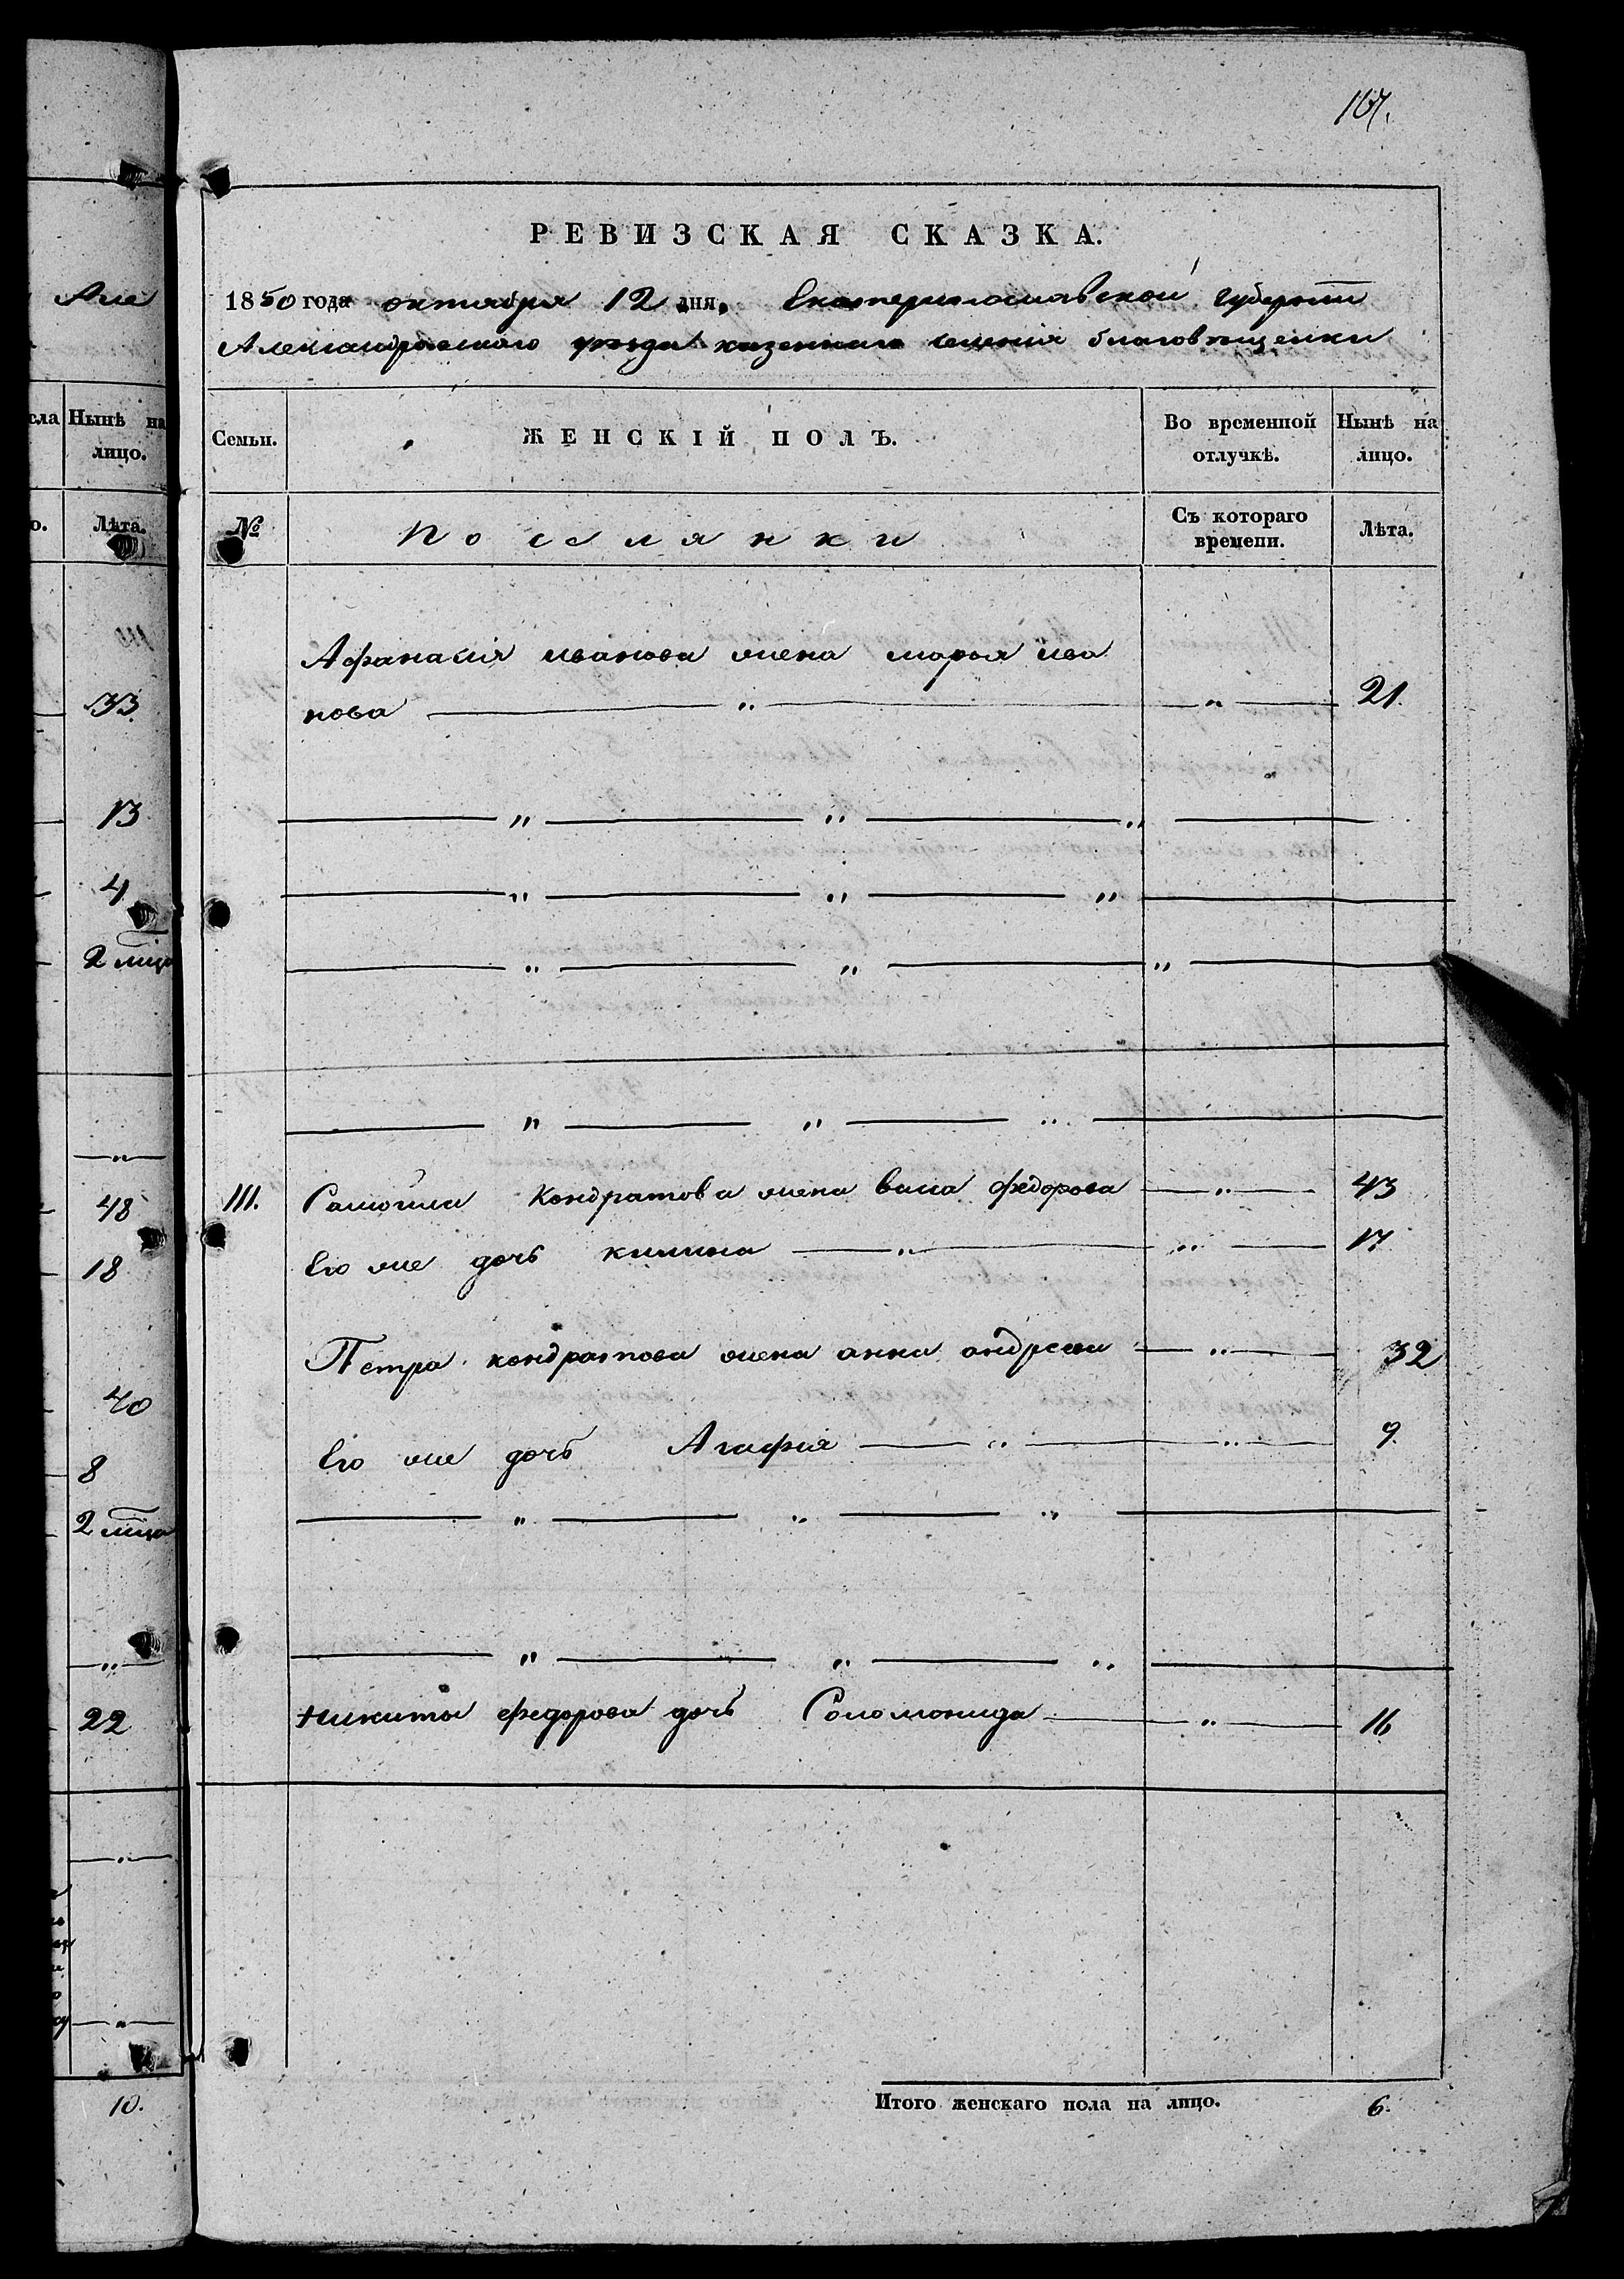 107.
РЕВИЗСКАЯ СКАЗКА.
1850 года октября 12 дня. Екатеринославской губернии
Александровского уезда казенного селения благовещенки
Семьи.
ЖЕНСКІЙ ПОЛЪ.
Во временной отлучкѣ.
Нынѣ на лицо.
№
Поселянки
Съ котораго времени.
Лѣта.
Афанасия иванова жена марья ива
нова — „ — „ — 21.
— „ — „ — „ —
— „ — „ — „ —
— „ — „ — „ —
— „ — „ — „ —
111. Самойли Кондратова жена васа федорова — „ — 43
Его же дочь — „ — „ — 17
Петра кондратова жена анна андреева — „ — 32
Его же дочь Агафия — „ — „ — 9.
— „ — „ — „ —
— „ — „ — „ —
Никиты федорова дочь Соломонида — „ — 16
Итого женскаго пола на лицо. 6.
Але
сла
Нынѣ на лицо.
о.
Лѣта.
33.
13
4
2 мца
— „ —
48
18
40
8
2 мца
— „ —
22
— „ —
— „ —
10.